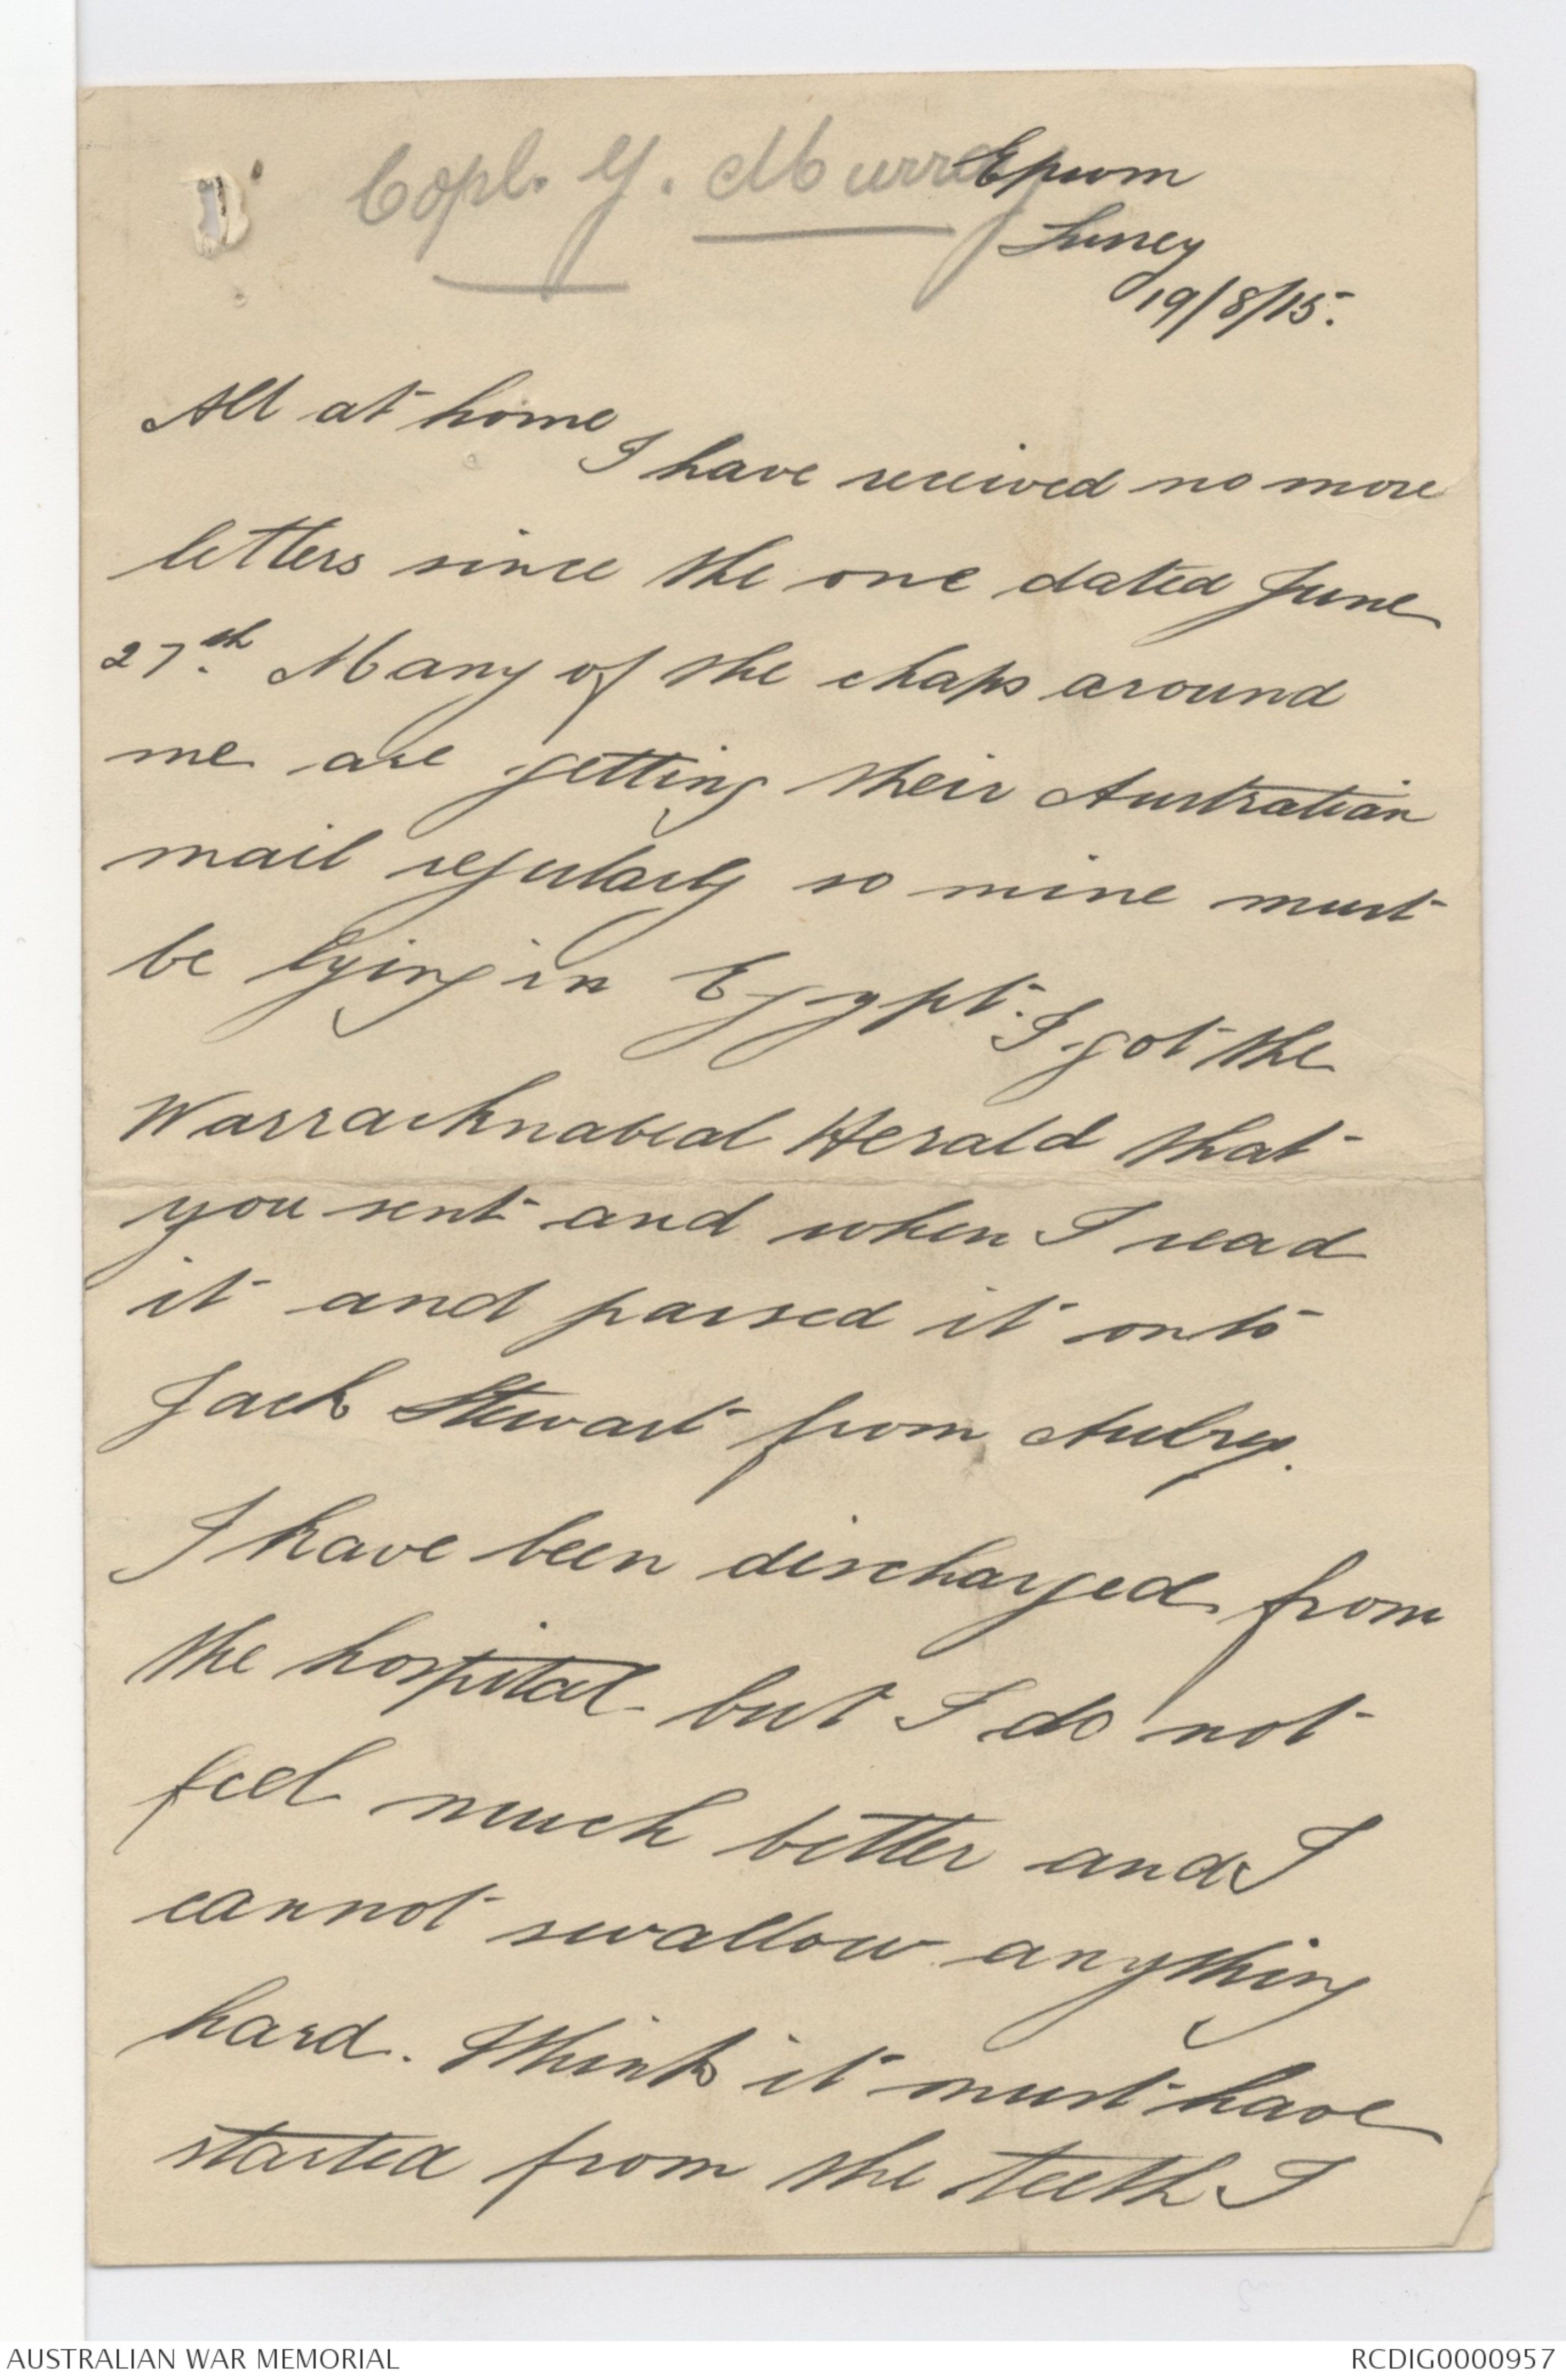 Copl. G. Murray
Epsom
Surrey
19/8/15.
All at home
I have received no more
letters since the one dated June
27th. Many of the chaps around
me are getting their Australian
mail regularly so mine must
be lying in Egypt. I got the
Warracknabeal Herald that
you sent and when I read
it and passed it onto
Jack Stewart from Aubrey.
I have been discharged from
the hospital but I do not
feel much better and I
cannot swallow anything
hard. I think it must have
started from the teeth I
AUSTRALIAN WAR MEMORIAL
RCDIG0000957